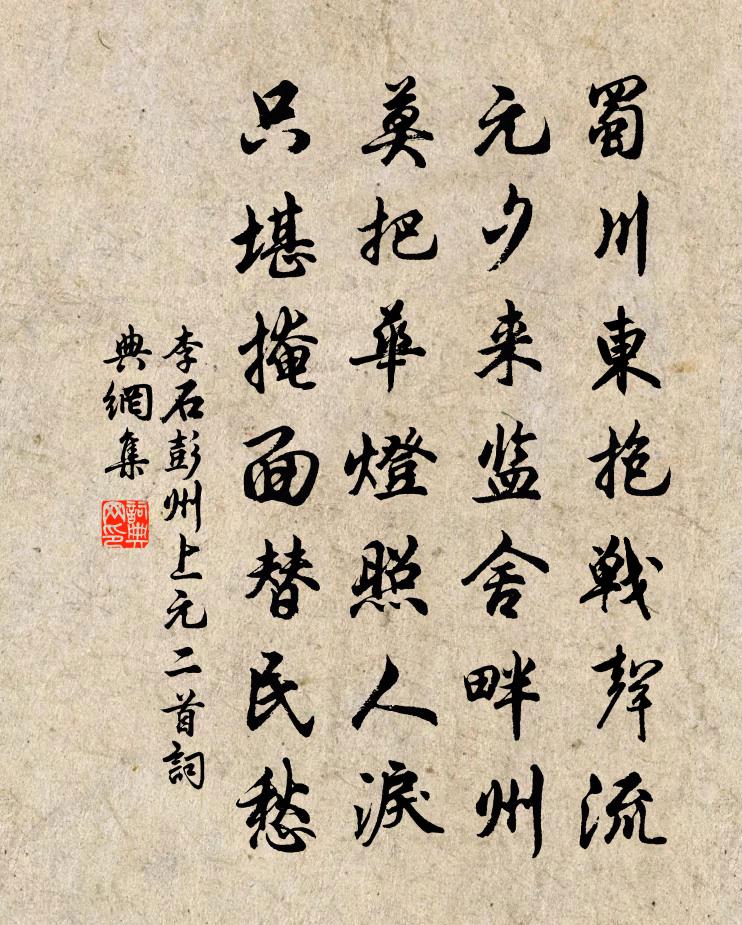 蜀川東抱戰聲流
元夕来监舍畔州
莫把華燈照人淚
只堪掩面替民愁
李石彭州上元二首詞
典網集
詞典
网印